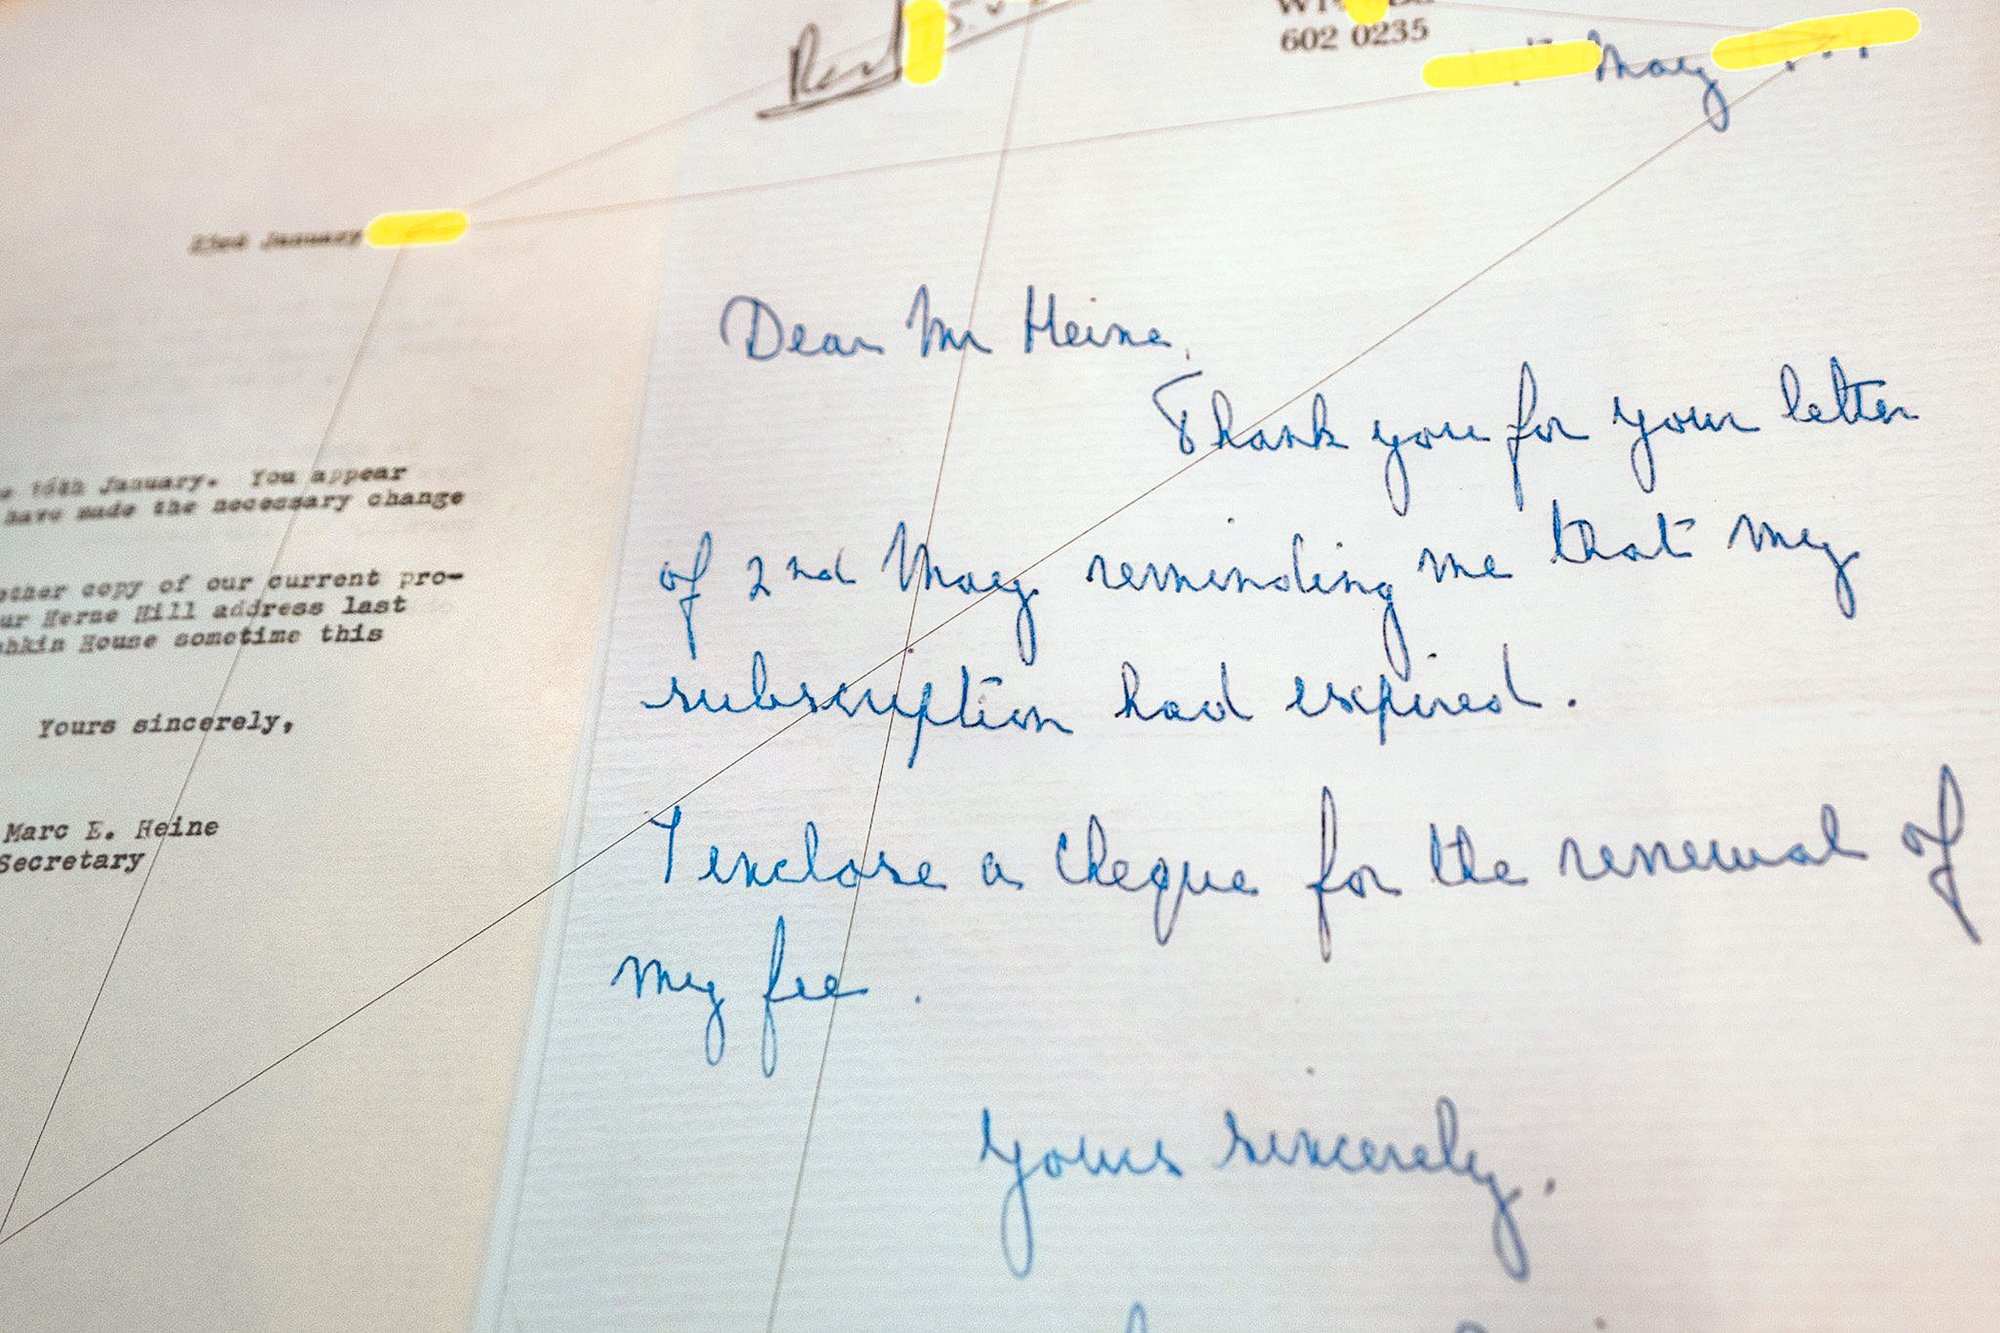 23rd January
16th January. You appear
have made the necessary change
copy of our current pro-
Herne Hill address last
House sometime this
Yours sincerely,
Marc E. Heine
Secretary
602 0235
May
Dear Mr Heine,
Thank you for your letter
of 2nd May reminding me that my
subscription had expired.
I enclose a cheque for the renewal of
my fee.
Yours sincerely,